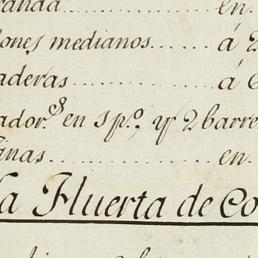 randa .......... en.
ones medianos...... á 2
aderas .......... á 6
ador.s en 1 p.o, y 2 barre
inas .......... en.
a Huerta de Co